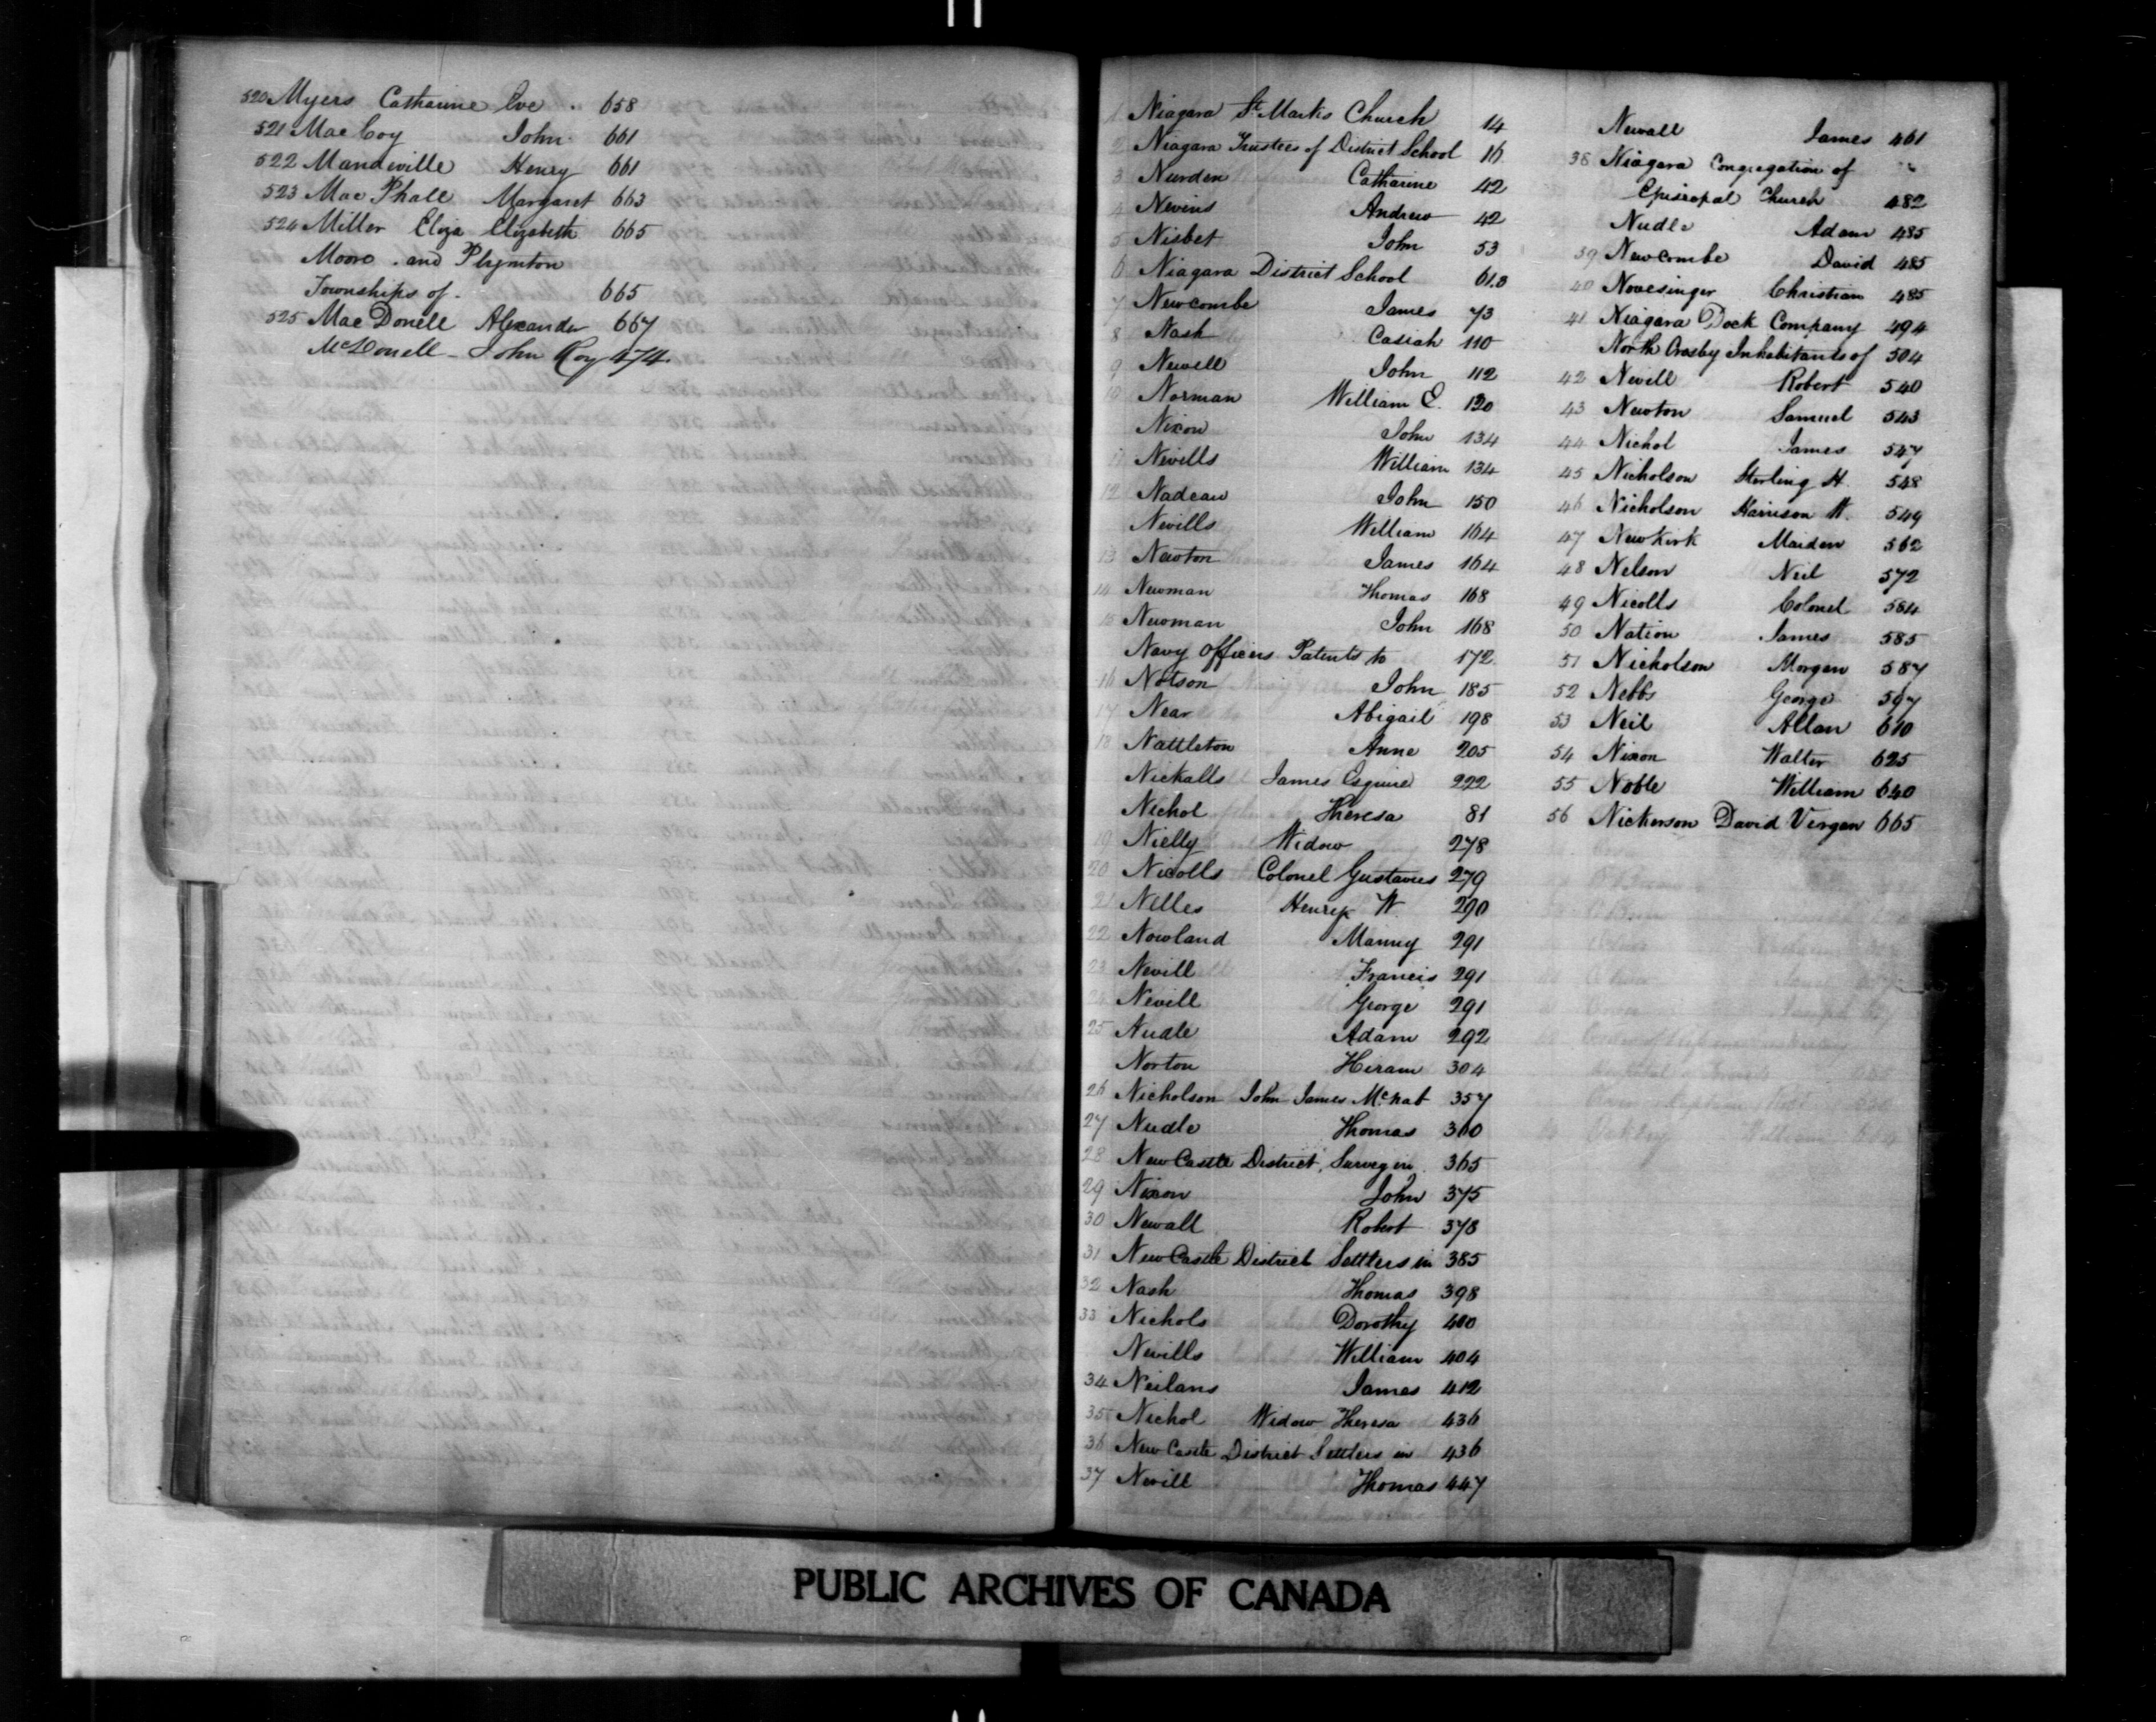 520 Myers Catharine Eve . 658
521 Mac Coy John 661
522 Mandeville Henry 661
523 Mac Phall Margaret 663
524 Miller Eliza Elizabeth 665
Moore and Plympton
Townships of . 665
525 Mac Donell Alexander 667
McDonell - John Roy 474
1 Niagara St. Marks Church 14
2 Niagara Trustees of District School 16
3 Nurden Catharine 42
4 Nevins Andrew 42
5 Nisbet John 53
6 Niagara District School
7 Newcombe James 73
8 Nash Casiah 110
9 Newell John 112
10 Norman William E. 120
Nixon John 134
11 Nevills William 134
12 Nadeau John 150
Nevills William 164
13 Newton James 164
14 Newman Thomas 168
15 Newman John 168
Navy Officers Patents to 172
16 Notson John 185
17 Near Abigail 198
18 Nattleton Anne 205
Nickalls James Esquire 222
Nichol Theresa 81
19 Nielly Widow 278
20 Nicolls Colonel Gustavus 279
21 Nelles Henry W. 290
22 Nowland Manny 291
23 Nevill Francis 291
24 Nevill George 291
25 Nudle Adam 292
Norton Hiram 304
26 Nicholson John James McNab 357
27 Nudle Thomas 360
28 New Castle District, Survey in 365
29 Nixon John 375
30 Newall Robert 378
31 New Castle District Settlers in 385
32 Nash Thomas 398
33 Nichols Dorothy 400
Nevills William 404
34 Neilans James 412
35 Nichol Widow Theresa 436
36 New Castle District Settlers in 436
37 Nevill Thomas 447
Newall James 461
38 Niagara Congregation of
Episcopal Church 482
Nudle Adam 485
39 Newcombe David 485
40 Novesinger Christian 485
41 Niagara Dock Company 494
North Crosby Inhabitants of 504
42 Nevill Robert 540
43 Newton Samuel 543
44 Nichol James 547
45 Nicholson Sterling H. 548
46 Nicholson Harrison W. 549
47 Newkirk Maiden 562
48 Nelson Neil 572
49 Nicolls Colonel 584
50 Nation James 585
51 Nicholson Morgan 587
52 Nebbs George 597
53 Neil Allan 610
54 Nixon Walter 625
55 Noble William 640
56 Nickerson David Vergen 665
PUBLIC ARCHIVES OF CANADA